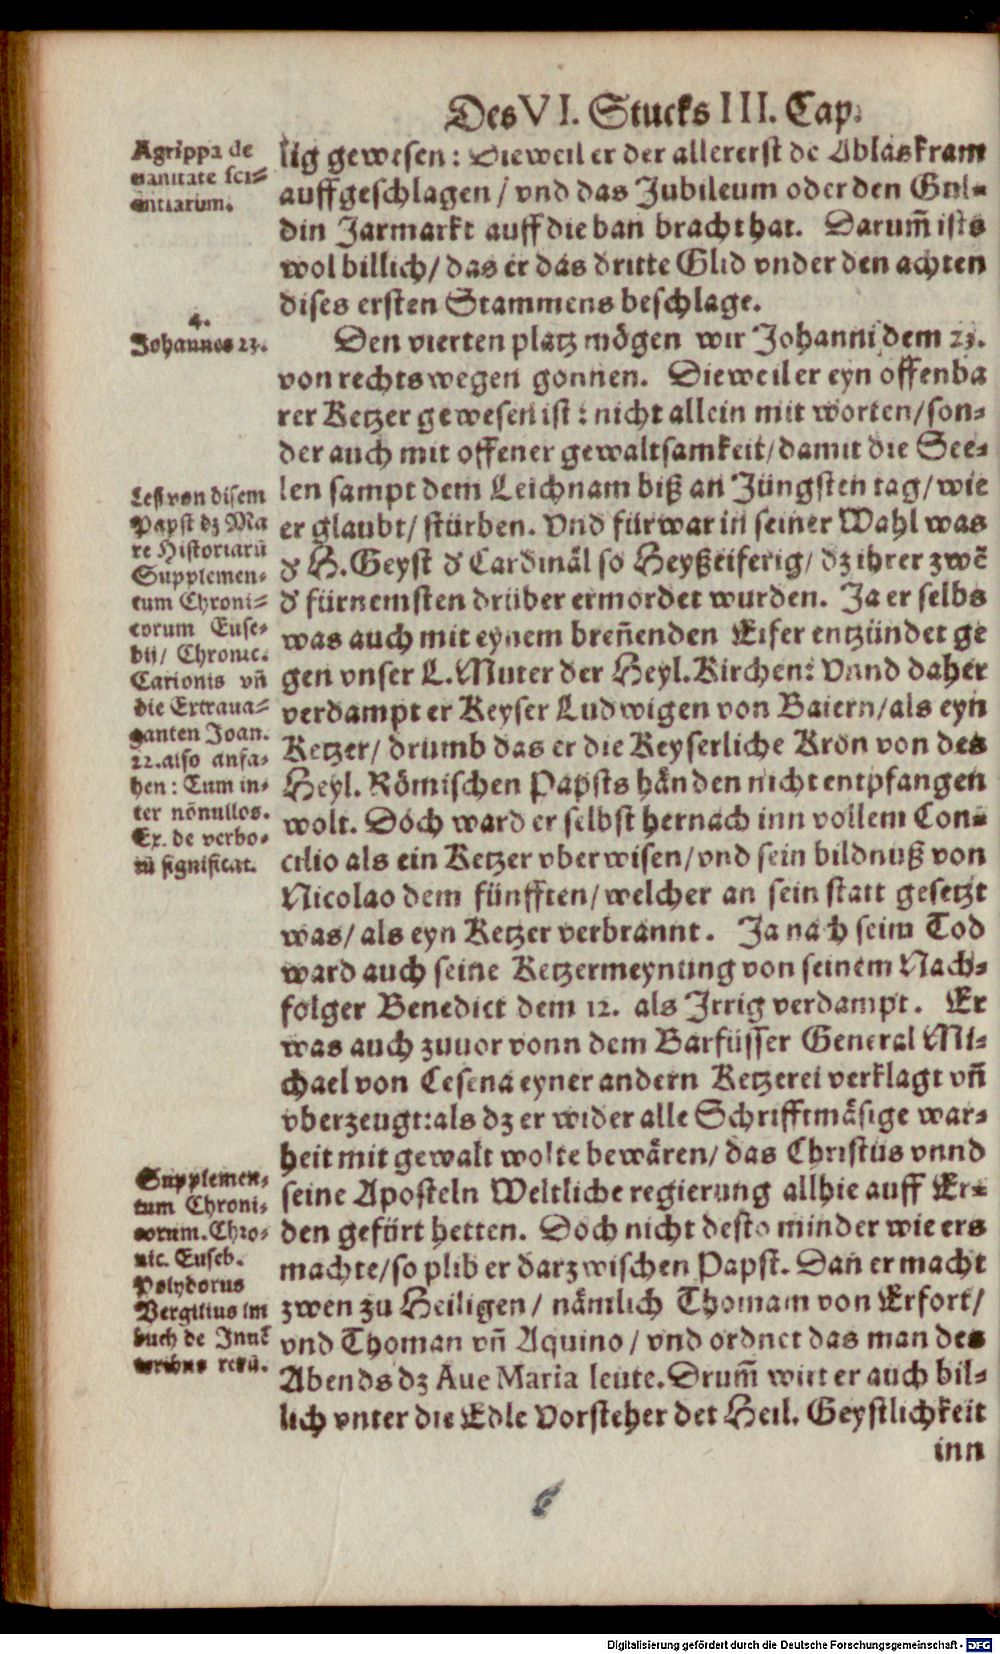 Des VI. Stucks III. Cap.
Agrippa de
vanitate sci⸗
entiarum.
lig gewesen: Dieweil er der allererst dē Ablaskram
auffgeschlagen / vnd das Jubileum oder den Gul⸗
din Jarmarkt auff die ban bracht hat. Darum̃ ists
wol billich / das er das dritte Glid vnder den achten
dises ersten Stammens beschlage.
4.
Johannes 23.
Den vierten platz mögen wir Johanni dem 23.
von rechts wegen gonnen. Dieweil er eyn offenba
rer Ketzer gewesen ist: nicht allein mit worten / son⸗
der auch mit offener gewaltsamkeit / damit die See⸗
len sampt dem Leichnam biß an Jüngsten tag / wie
er glaubt / stürben. Vnd fürwar in seiner Wahl was
d' H. Geyst d' Cardinäl so Heyßeiferig / dz ihrer zwē
d' fürnemsten drüber ermordet wurden. Ja er selbs
was auch mit eynem breñenden Eifer entzündet ge
gen vnser L. Muter der Heyl. Kirchen: Vnnd daher
verdampt er Keyser Ludwigen von Baiern / als eyn
Ketzer / drumb das er die Keyserliche Kron von des
Heyl. Römischen Papsts händen nicht entpfangen
wolt. Doch ward er selbst hernach inn vollem Con⸗
cilio als ein Ketzer vberwisen / vnd sein bildnuß von
Nicolao dem fünfften / welcher an sein statt gesetzt
was / als eyn Ketzer verbrannt. Ja nach seim Tod
ward auch seine Ketzermeynung von seinem Nach⸗
folger Benedict dem 12. als Jrrig verdampt. Er
was auch zuuor vonn dem Barfüsser General Mi⸗
chael von Cesena eyner andern Ketzerei verklagt vñ
vberzeugt: als dz er wider alle Schrifftmäsige war⸗
heit mit gewalt wolte bewären / das Christus vnnd
seine Aposteln Weltliche regierung allhie auff Er⸗
den gefürt hetten. Doch nicht desto minder wie ers
machte / so plib er darzwischen Papst. Dañ er macht
zwen zu Heiligen / nämlich Thomam von Erfort /
vnd Thoman vñ Aquino / vnd ordnet das man des
Abends dz Aue Maria leute. Drum̃ wirt er auch bil⸗
lich vnter die Edle Vorsteher der Heil. Geystlichkeit
inn
Leß von disem
Papst dz Ma
re Historiarū
Supplemen⸗
tum Chroni⸗
corum Euse⸗
bij / Chronic.
Carionis vñ
die Extraua⸗
ganten Joan.
22. also anfa⸗
hen: Cum in⸗
ter nōnullos.
Ex. de verbo⸗
rū significat.
Supplemen⸗
tum Chroni⸗
corum. Chro⸗
nic. Euseb.
Polydorus
Vergilius im
buch de Inuē
toribus rerū.
Digitalisierung gefördert durch die Deutsche Forschungsgemeinschaft - DFG